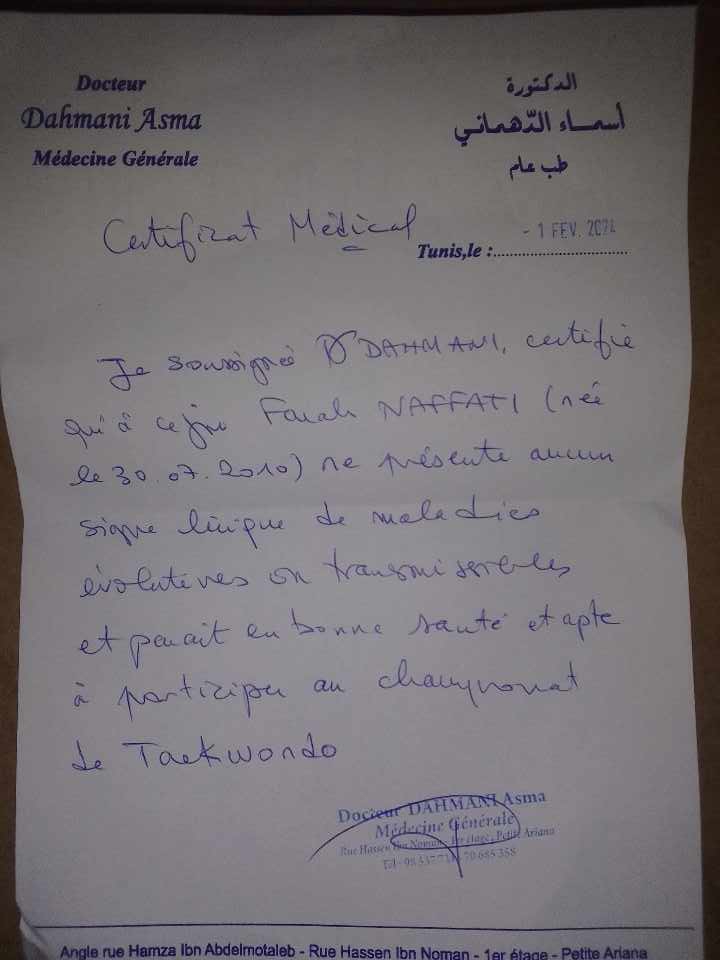 Docteur
Dahmani Asma
Médecine Générale
الدكتورة
أسماء الدّهماني
طب عام
Certificat Médical
- 1 FEV. 2024
Tunis,le :
Je soussigné Dr DAHMANI, certifie
qu'à ce jour Farah NAFFATI (née
le 30.07.2010) ne présente aucun
signe clinique de maladies
évolutives ou transmissibles
et parait en bonne santé et apte
à participer au championnat
de Taekwondo
Docteur DAHMANI Asma
Médecine Générale
Rue Hassen Ibn Noman - 1er étage, Petite Ariana
Tél : 98 337 718 - 70 685 358
Angle rue Hamza Ibn Abdelmotaleb - Rue Hassen Ibn Noman - 1er étage - Petite Ariana